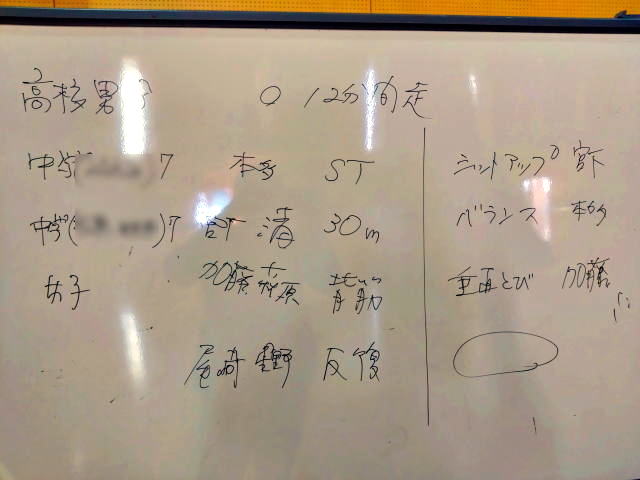 高校男子 〇 12分間走
中学( )7 本多 ST
中学( )7 清 30m
女子 加藤 萩原 背筋
尾崎 星野 反復
シットアップ 宮下
バランス 本多
垂直とび 加藤